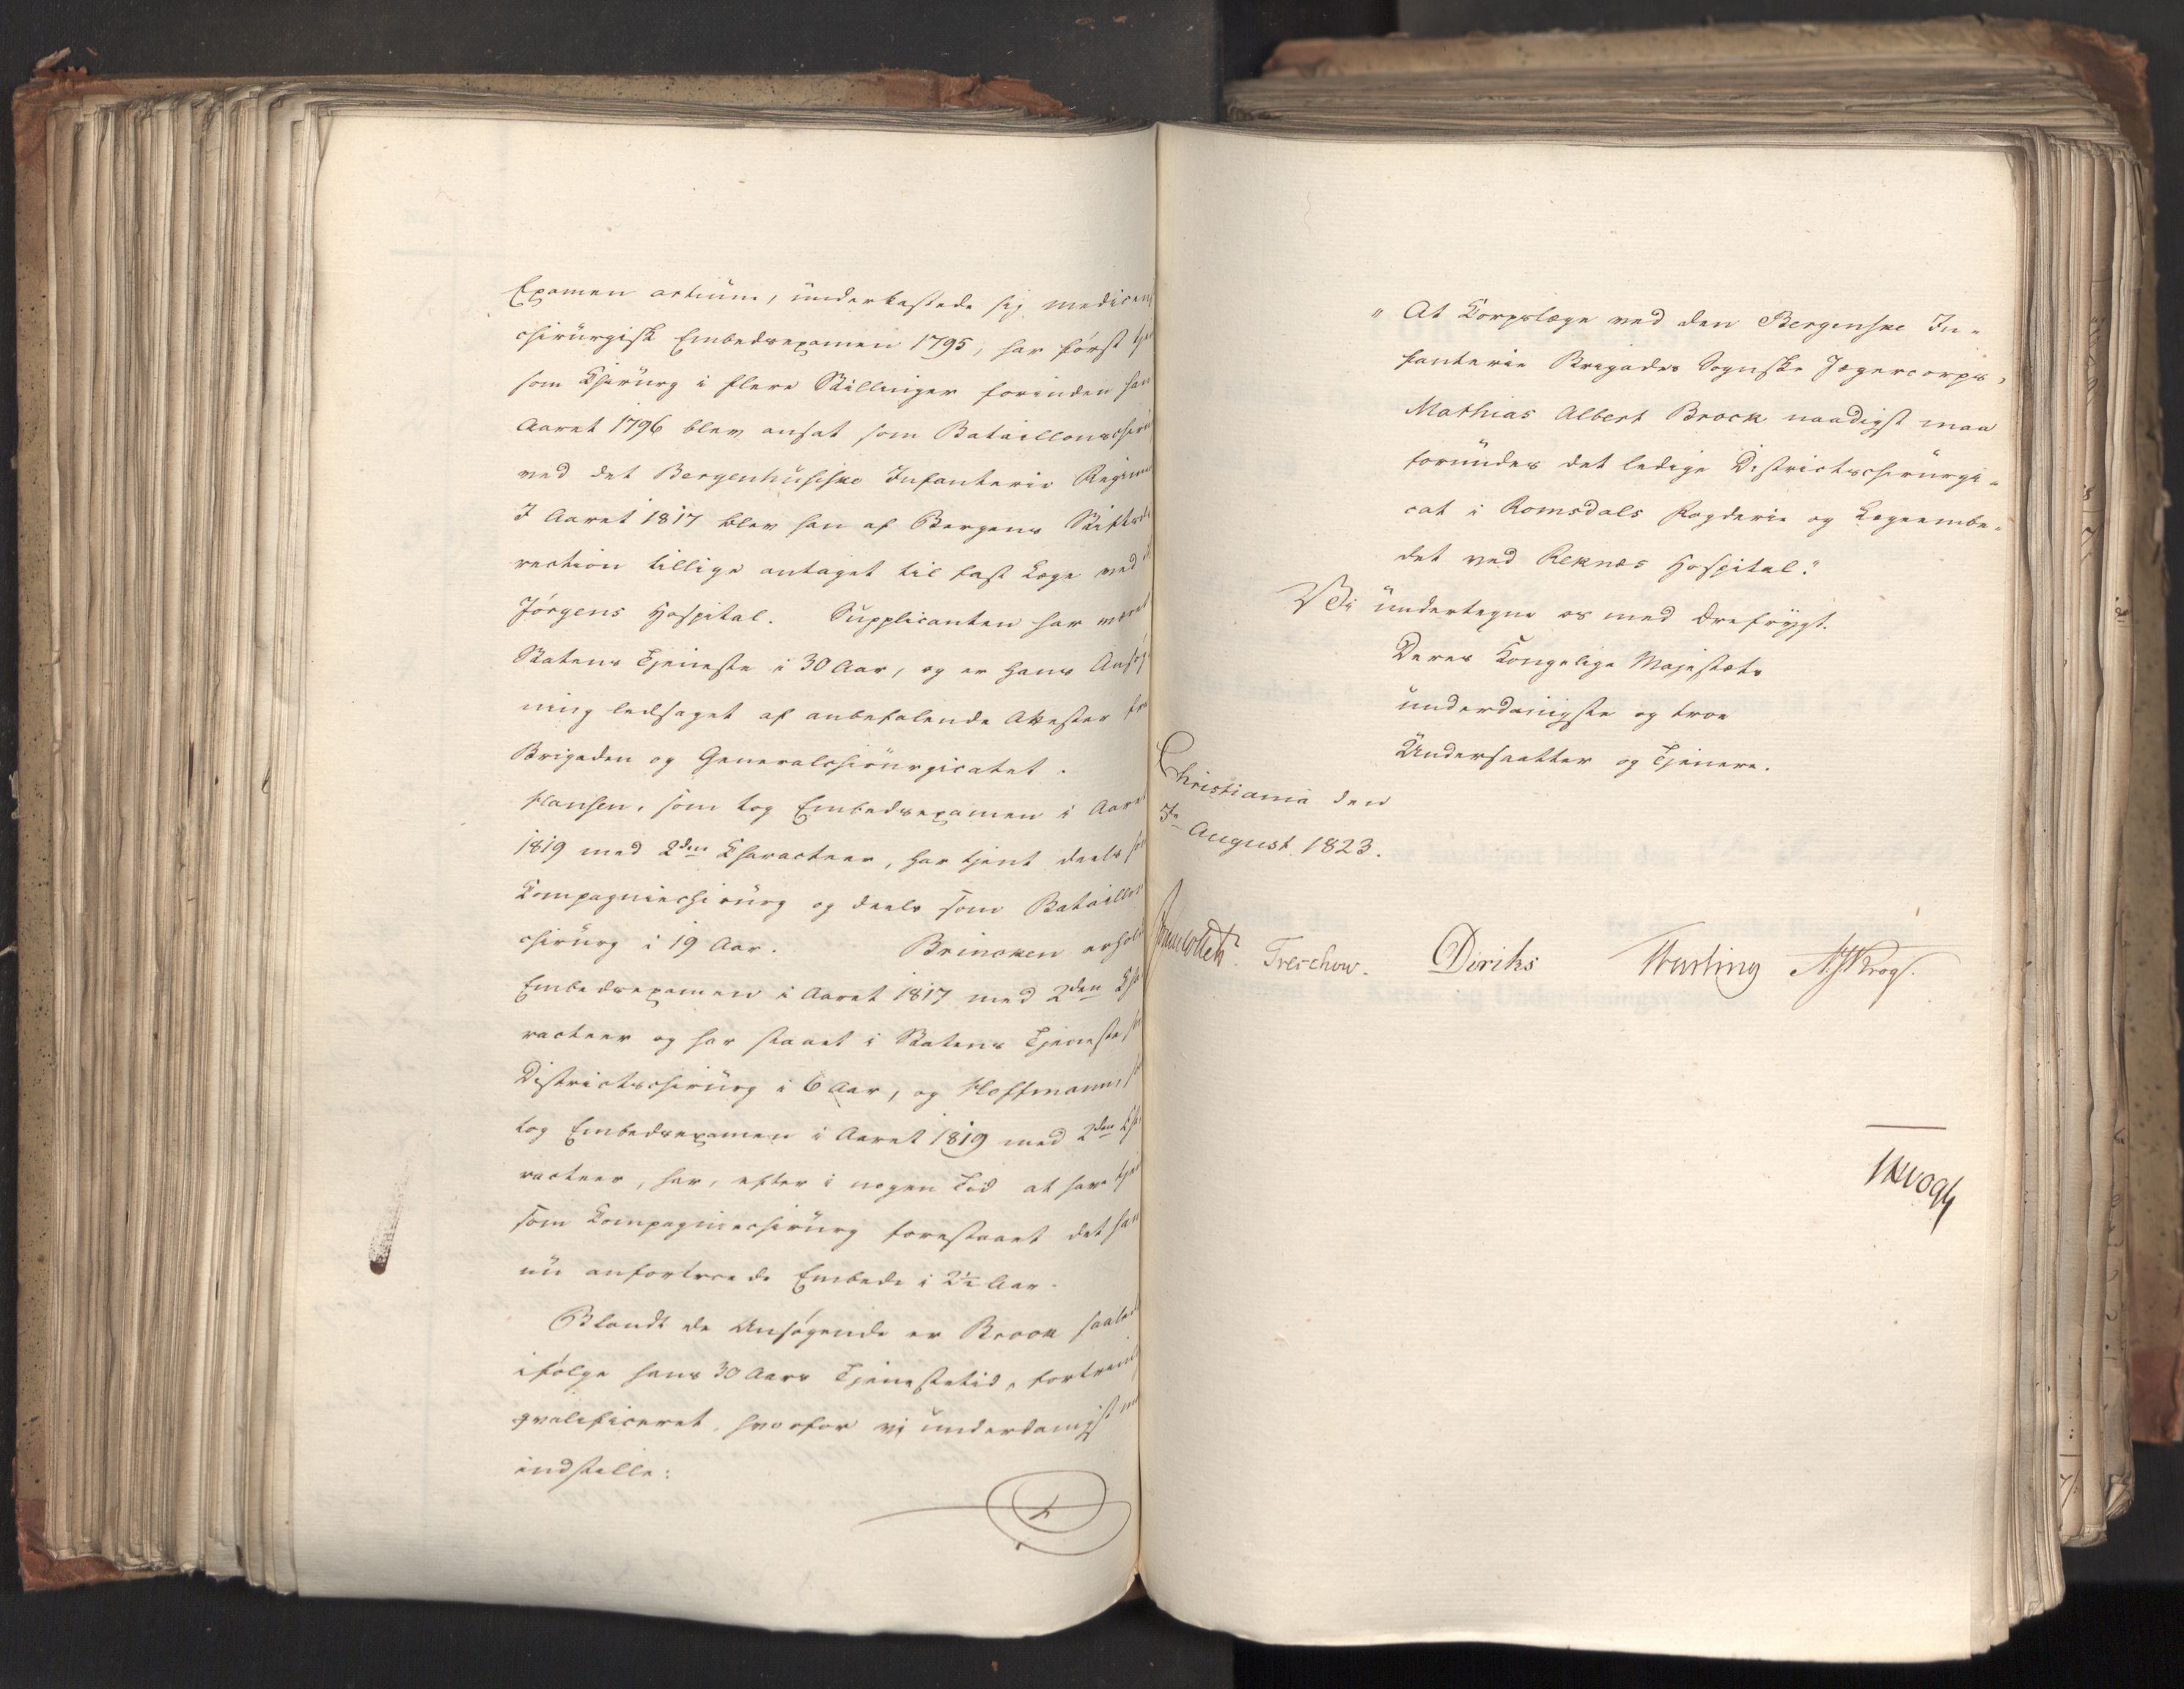 Examen artium, underkastede sig medicinsk
chirurgisk Embedsexamen 1795, har først
som Chirurg i flere Stillinger forinden han
Aaret 1796 blev ansat som Bataillonschir
ved det Bergenhusiske Infanterie Regim
I Aaret 1817 blev han af Bergens Stifts
rection tillige antaget til fast Læge ved
Jørgens Hospital. Supplicanten har været
Statens Tjeneste i 30 Aar, og er hans Ansøg
ning ledsaget af anbefalende Attester fra
Brigaden og Generalchirurgicatet.
Hansen, som tog Embedsexamen i Aaret
1819 med 2den Characteer, har tjent deels
Compagniechirurg og deels som Bataillon
chirurg i 19 Aar. Brincken erholdt
Embedsexamen i Aaret 1817 med 2den Cha
racteer og har staaet i Statens Tjeneste
Districtschirurg i 6 Aar, og Hoffmann,
tog Embedsexamen i Aaret 1819 med 2den Cha
racteer, har, efter i nogen Tid at have
som Compagniechirurg forestaaet det han
nu anfortroede Embede i 2½ Aar.
Blandt de Ansøgende er Brock saaledes
ifølge hans 30 Aars Tjenestetid, fortrinlig
qvalificeret, hvorfor vi underdanigst
indstille:
" At Corpslæge ved den Bergenske In-
fanterie Brigades Sognske Jægercorps,
Mathias Albert Brock naadigst maa
forundes det ledige Districtschirurgi-
cat i Romsdals Fogderie og Lægeembe-
det ved Reknæs Hospital."
Vi undertegne os med Ærefrygt.
Deres Kongelige Majestæts
underdanigste og troe
Undersaatter og Tjenere.
Christiania den
7de August 1823.
Treschow. Diriks
Krogh